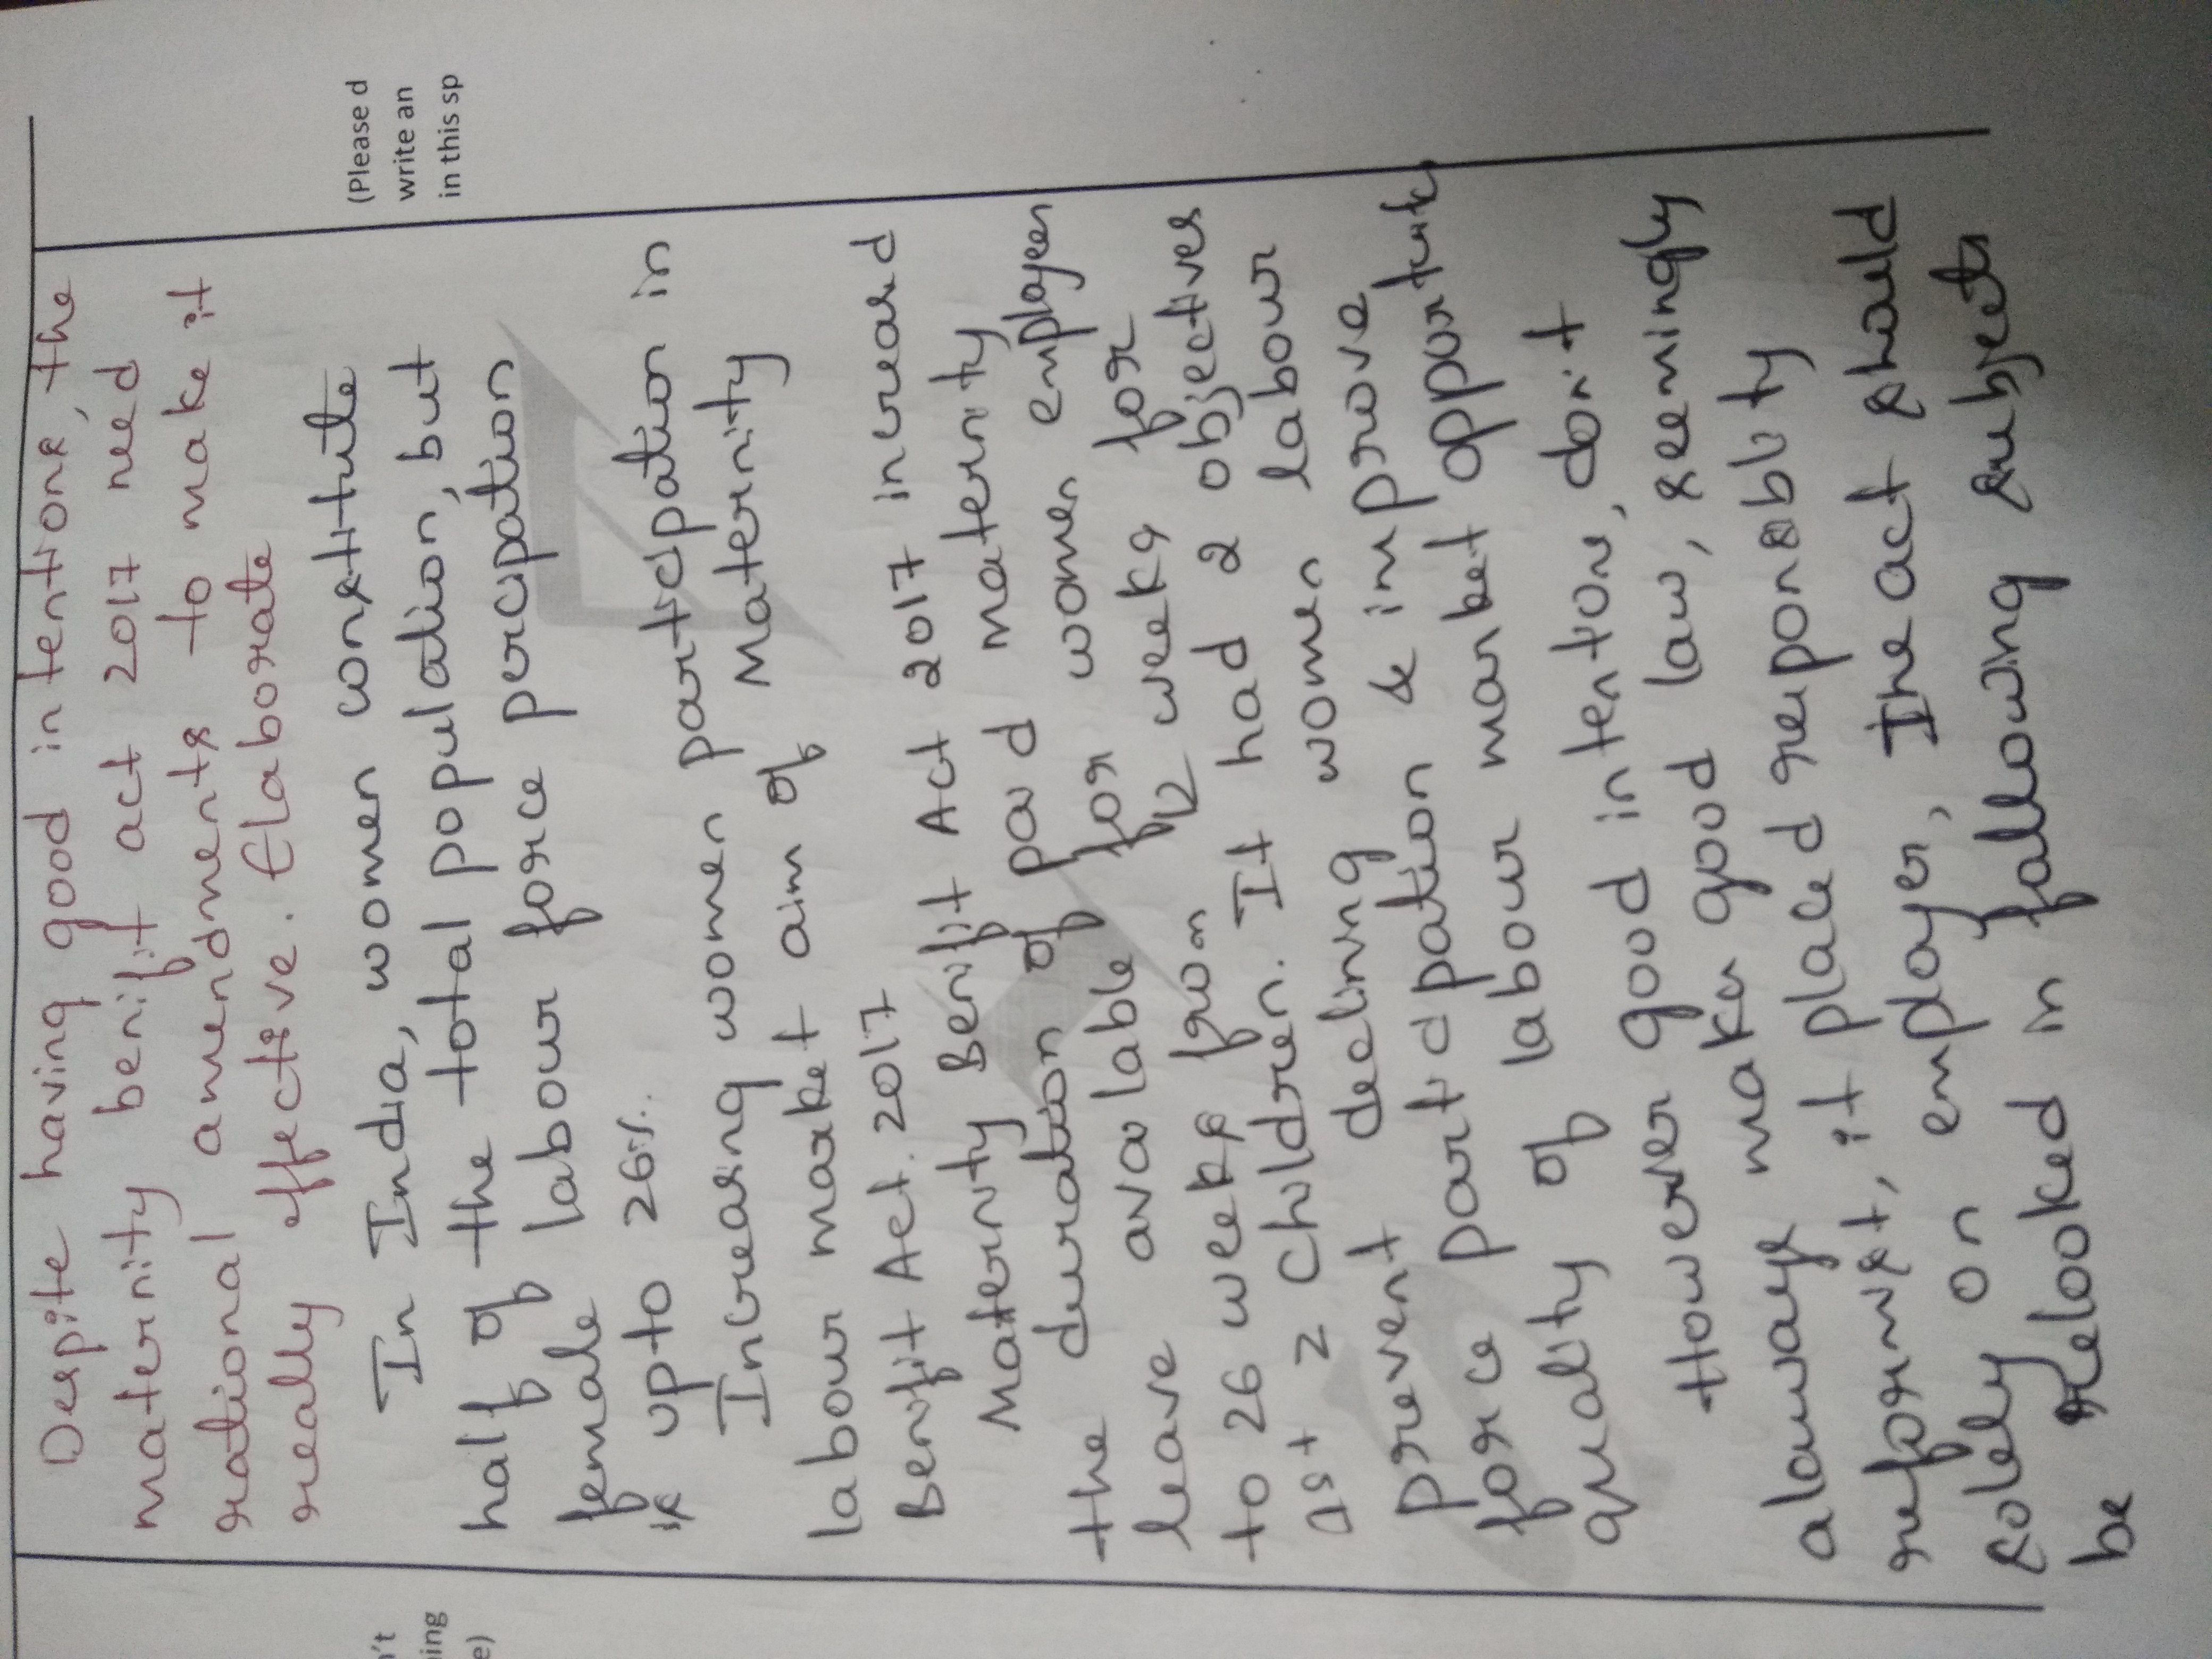 Despite having good intentions, the
maternity benifit act 2017 need
rational amendments to make it
really effective. Elaborate
(Please d
write an
in this sp
In India, women constitute
half of the total population, but
female labour force percipation
is upto 26%.
Increasing women particpation in
labour market aim of Maternity
Benifit Act. 2017
Maternity Benifit Act 2017 increasd
the duration of paid maternity
leave available for women employees
to 26 weeks from 12 weeks for
1st 2 children. It had 2 objectives
prevent declining women labour
force participation & improve
quality of labour market
However good intentions, don't
alaways makes good law, seemingly
reformist, it placed responsblity
solely on employer, The act should
be relooked in following subjects
n't
hing
e)